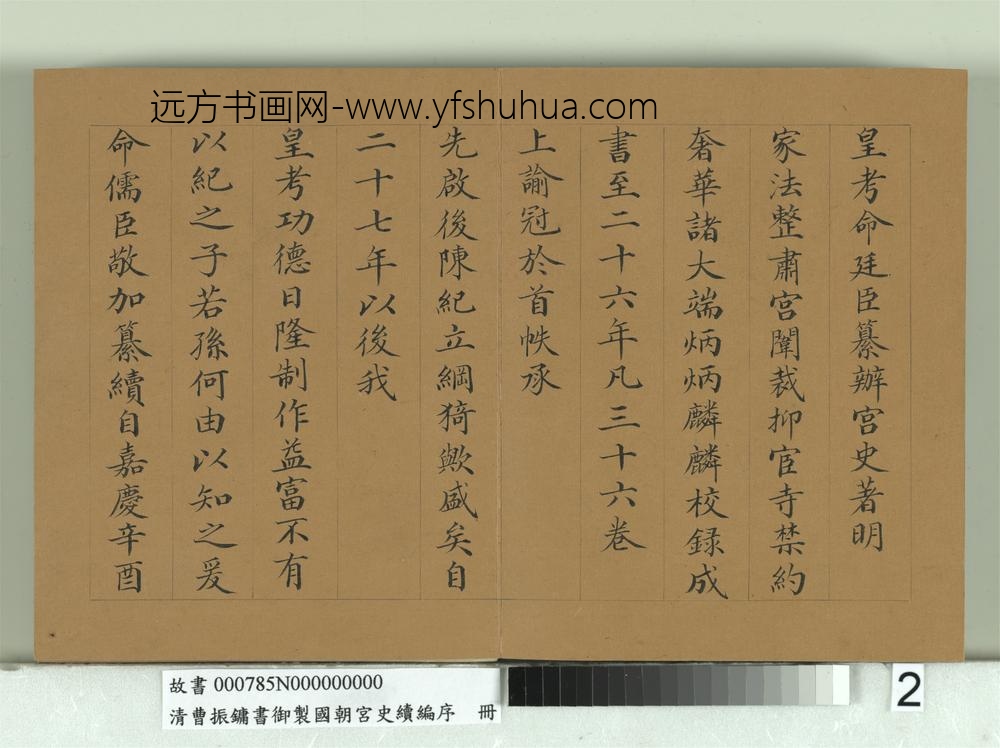 远方书画网-www.yfshuhua.com
皇考命廷臣纂辦宫史著明
家法整肅宫闈裁抑宦寺禁約
奢華諸大端炳炳麟麟校録成
書至二十六年凡三十六卷
上諭冠於首帙承
先啟後陳紀立綱猗歟盛矣自
二十七年以後我
皇考功德日隆制作益富不有
以紀之子若孫何由以知之爰
命儒臣敬加纂續自嘉慶辛酉
故書 000785N000000000
清曹振鏞書御製國朝宮史續編序 冊
2